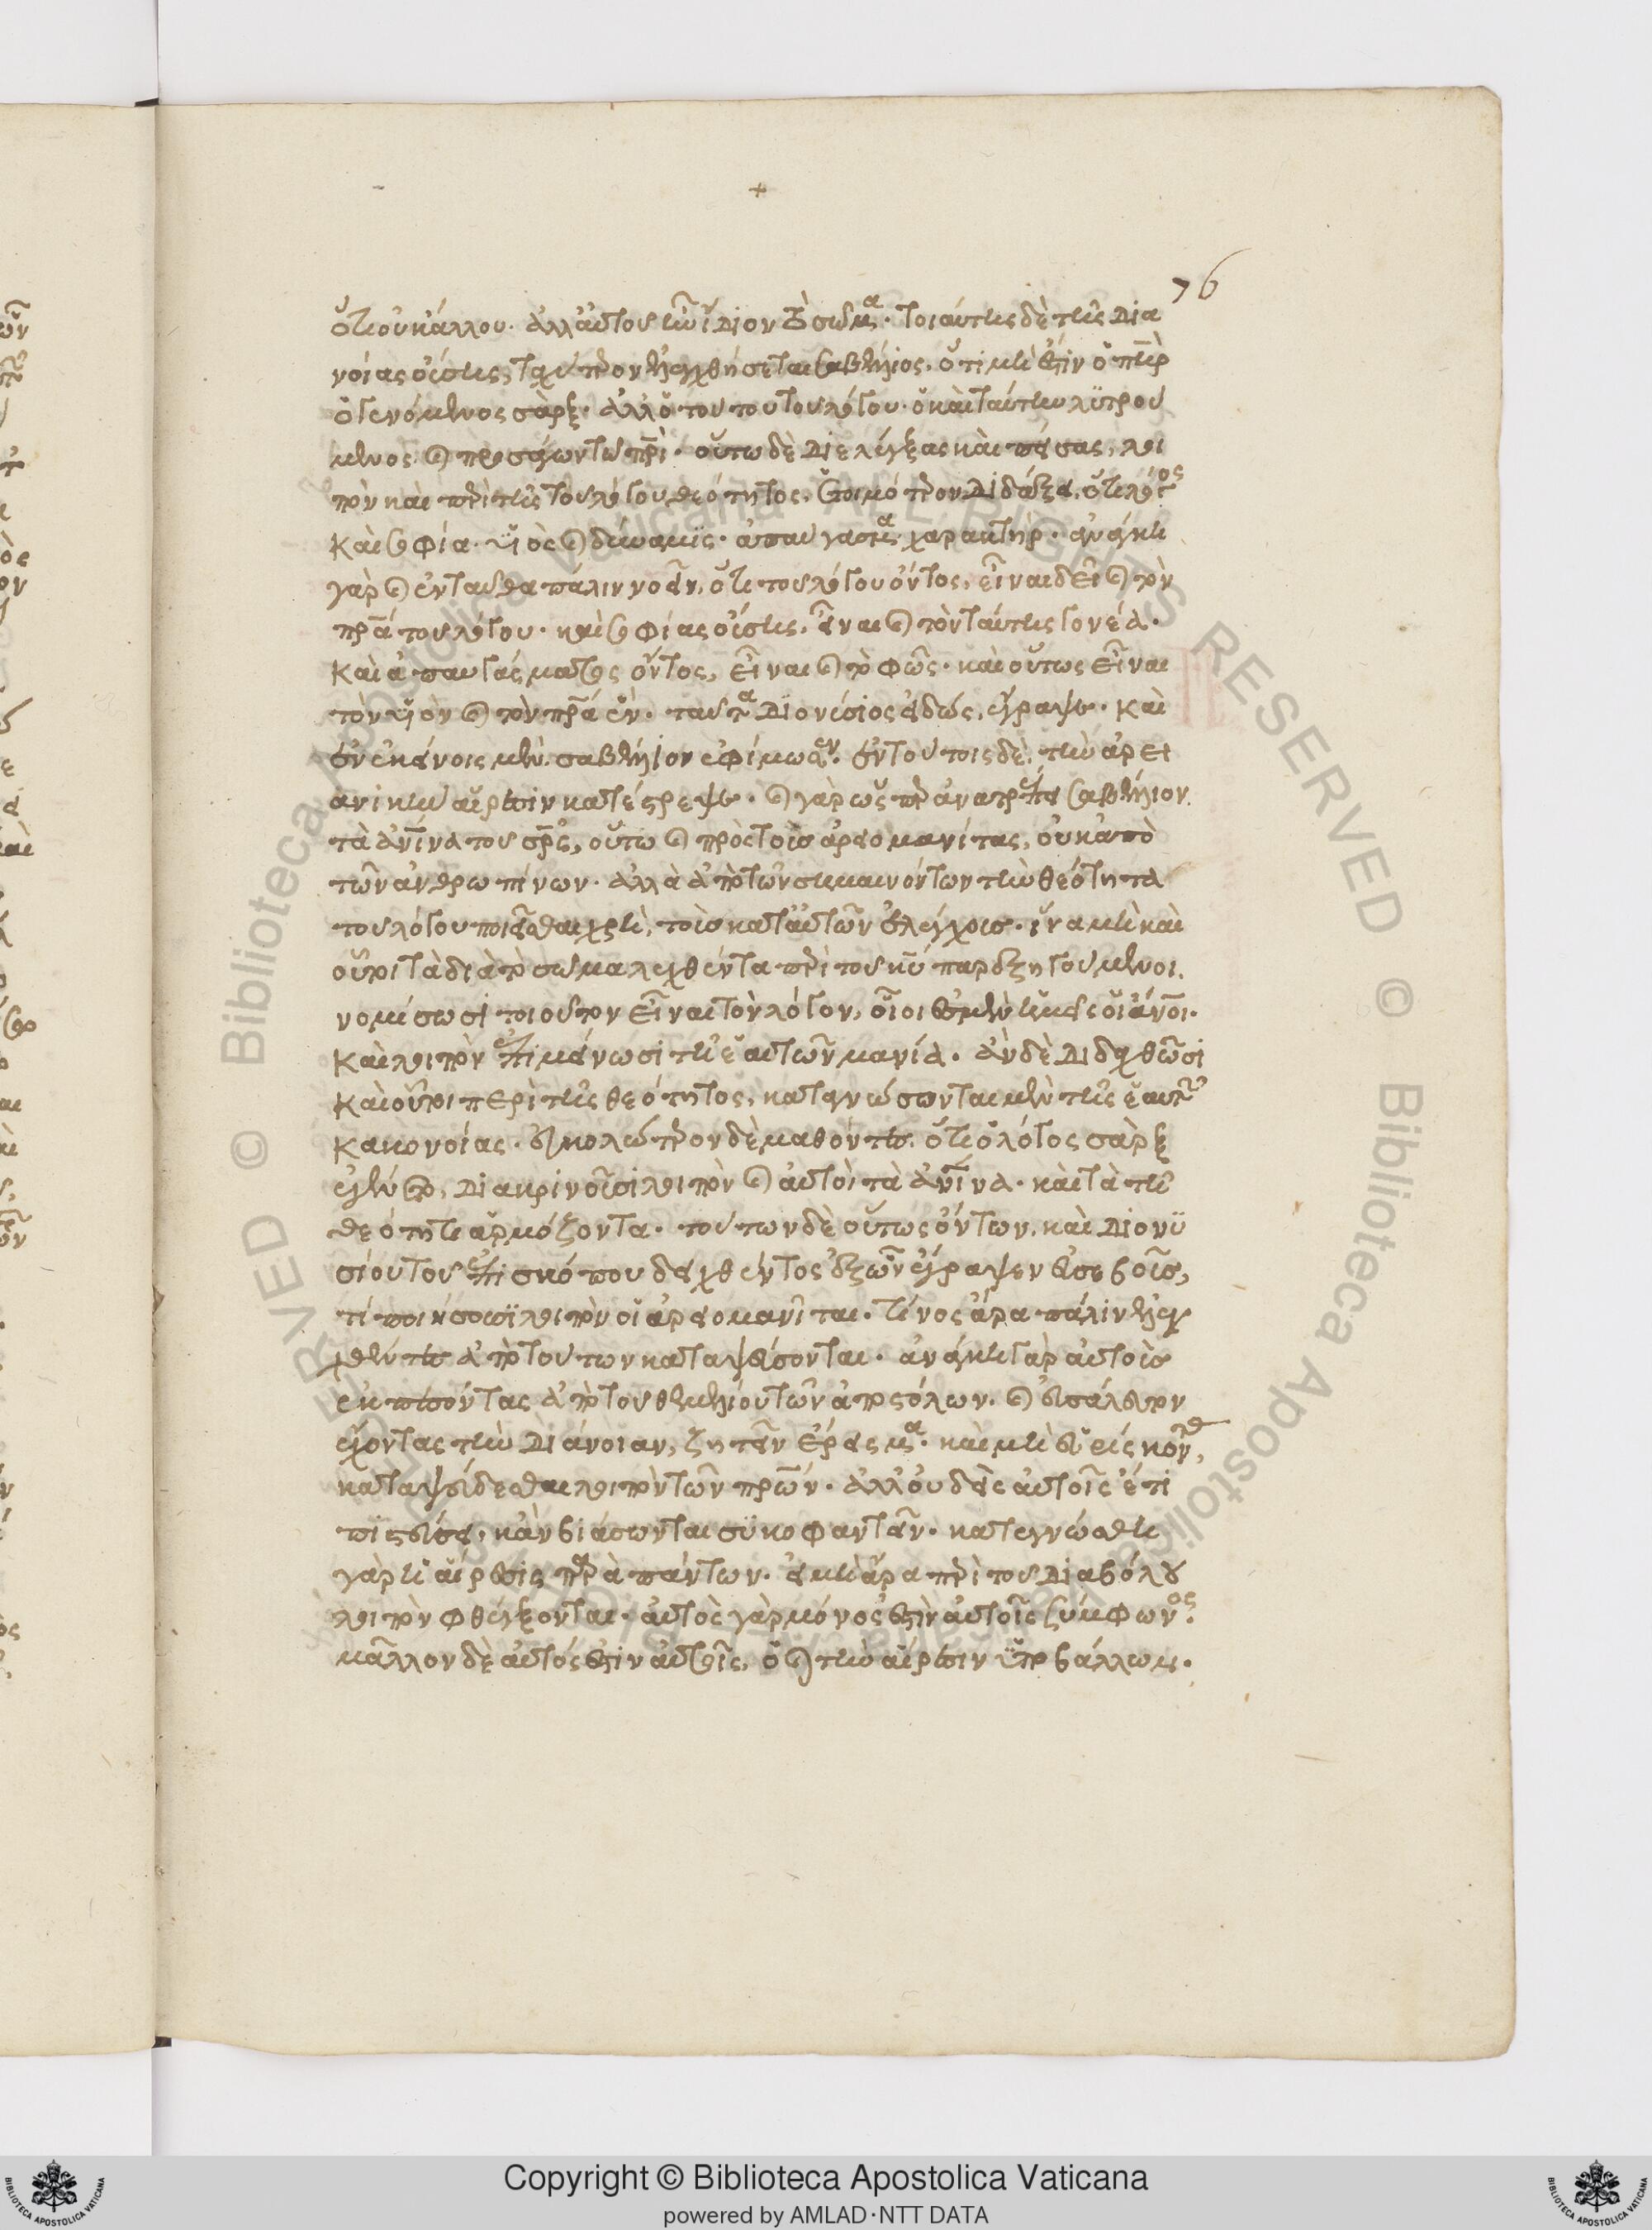 76
ὅτι οὐκ ἄλλου. ἀλλ' αὐτοῦ ἦν ἴδιον τὸ σῶμα. τοιαύτης δὲ τῆς δια
νοίας οὔσης, ταχύτερον ἐλεγχθήσεται σαβέλλιος. ὅτι μὴ ἔστιν ὁ πατὴρ
ὁ γενόμενος σάρξ. ἀλλ' ὁ τούτου λόγος. ὁ καὶ ταύτην λυτρού
μενος καὶ προσάγων τῷ πρὶ. οὕτω δὲ διελέγξας καὶ πείσας, λοι
πὸν καὶ περὶ τῆς τοῦ λόγου θεότητος, ἑτοιμότερον διδάξει. ὅτι λόγος
καὶ σοφία. υἱὸς καὶ δύναμις. ἀπαύγασμα χαρακτήρ. ἀνάγκη
γὰρ καὶ ἐνταῦθα πάλιν νοεῖν, ὅτι τοῦ λόγου ὄντος, εἶναι δεῖ καὶ τὸν
πρα τοῦ λόγου. καὶ σοφίας οὔσης, εἶναι καὶ τὸν ταύτης γονέα.
καὶ ἀπαυγάσματος ὄντος, εἶναι καὶ τὸ φῶς. καὶ οὕτως εἶναι
τὸν υἱὸν καὶ τὸν πρα ἕν. ταῦτα διονύσιος εἰδώς, ἔγραψε. καὶ
ἐν ἐκείνοις μὲν σαβέλλιον ἐφίμωσεν. ἐν τούτοις δὲ, τὴν ἀρει
ανικὴν αἵρεσιν κατέστρεψε. καὶ γὰρ ὥσπερ ἀνατρέπει σαβέλλιον
τὰ ἀνινα τοῦ σρς, οὕτω καὶ πρὸς τοῖς ἀρειομανίτας, οὐκ ἀπὸ
τῶν ἀνθρωπίνων. ἀλλὰ ἀπὸ τῶν σημαινόντων τὴν θεότητα
τοῦ λόγου ποιεῖσθαι χρὴ, τοῖς κατ' αὐτῶν ἐλέγχοις. ἵνα μὴ καὶ
οὗτοι τὰ διὰ τὸ σῶμα λεχθέντα περὶ τοῦ κυ παρεξηγούμενοι,
νομίσωσι τοιοῦτον εἶναι τὸν λόγον, οἷοι ἐσμὲν ἡμεῖς οἱ ἄνοι.
καὶ λοιπὸν ἐπιμείνωσι τῇ ἑαυτῶν μανίᾳ. ἂν δὲ διδαχθῶσι
καὶ οὗτοι περὶ τῆς θεότητος, καταγνώσονται μὲν τῆς ἑαυτῶν
κακονοίας. εὐκολώτερον δὲ μαθόντες. ὅτι ὁ λόγος σὰρξ
ἐγένετο, διακρινοῦσι λοιπὸν καὶ αὐτοὶ τὰ ἀνινα. καὶ τὰ τῇ
θεότητι ἁρμόζοντα. τούτων δὲ οὕτως ὄντων, καὶ διονυ
σίου τοῦ ἐπισκόπου δειχθέντος ἐξ ὧν ἔγραψεν εὐσεβοῦς,
τί ποιήσουσι λοιπὸν οἱ ἀρειομανῖται. τίνος ἄρα πάλιν ἐλεγ
χθέντες ἀπὸ τούτων καταψεύσονται. ἀνάγκη γὰρ αὐτοὺς
ἐκπεσόντας ἀπὸ τοῦ θεμελίου τῶν ἀποστόλων. καὶ ἀσάλευτον
ἔχοντας τὴν διάνοιαν, ζητεῖν ἔρεισμα. καὶ μὴ εὑρίσκοντας,
καταψεύδεσθαι λοιπὸν τῶν πρων. ἀλλ' οὐδεὶς αὐτοῖς ἔτι
πιστεύσει. κἂν βιάσωνται συκοφαντεῖν. κατέγνωσθη
γὰρ ἡ αἵρεσις παρὰ πάντων. εἰ μὴ ἄρα περὶ τοῦ διαβόλου
λοιπὸν φθέγξονται. αὐτὸς γὰρ μόνος ἐστὶν αὐτοῖς σύμφωνος.
μᾶλλον δὲ αὐτός ἐστιν αὐτοῖς, ὁ καὶ τὴν αἵρεσιν ὑποβάλλων.
Copyright © Biblioteca Apostolica Vaticana
powered by AMLAD·NTT DATA